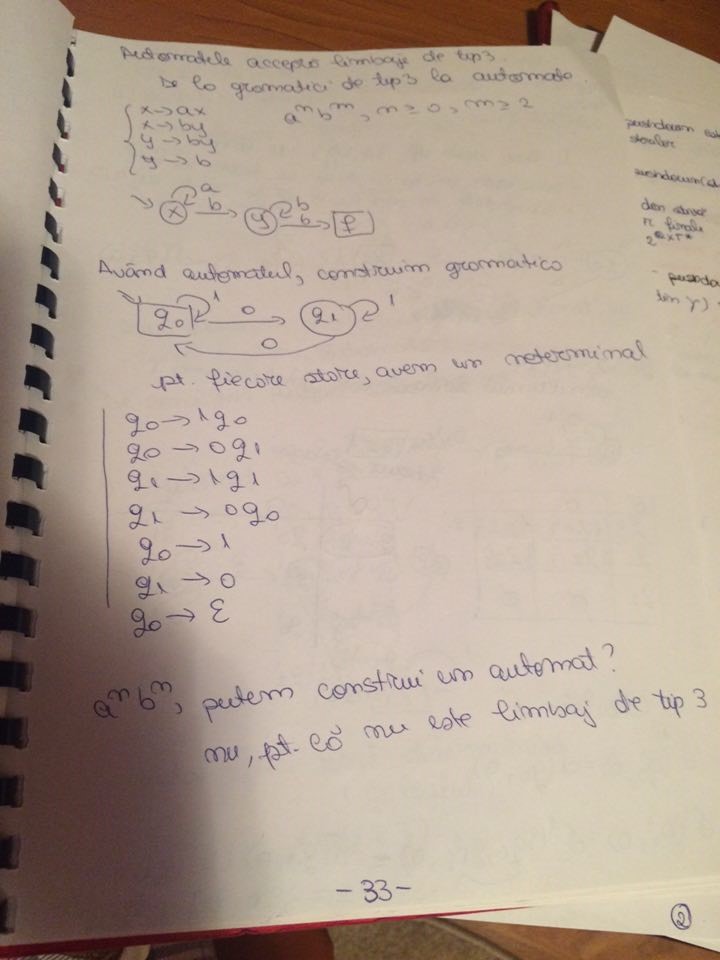 Automatele acceptă limbaje de tip 3.
De la gramatici de tip 3 la automate
x → ax
a^n b^m, n ≥ 0, m ≥ 2
x → by
y → by
y → b
a
b
b
b
x
y
f
Având automatul, construim gramatica
1
0
1
q0
q1
0
pt. fiecare stare, avem un neterminal
q0 → 1q0
q0 → 0q1
q1 → 1q1
q1 → 0q0
q0 → 1
q1 → 0
q0 → ε
a^n b^n, putem construi un automat?
nu, pt. că nu este limbaj de tip 3
- 33 -
2
pushdown
pushdown
n finale
pushdo